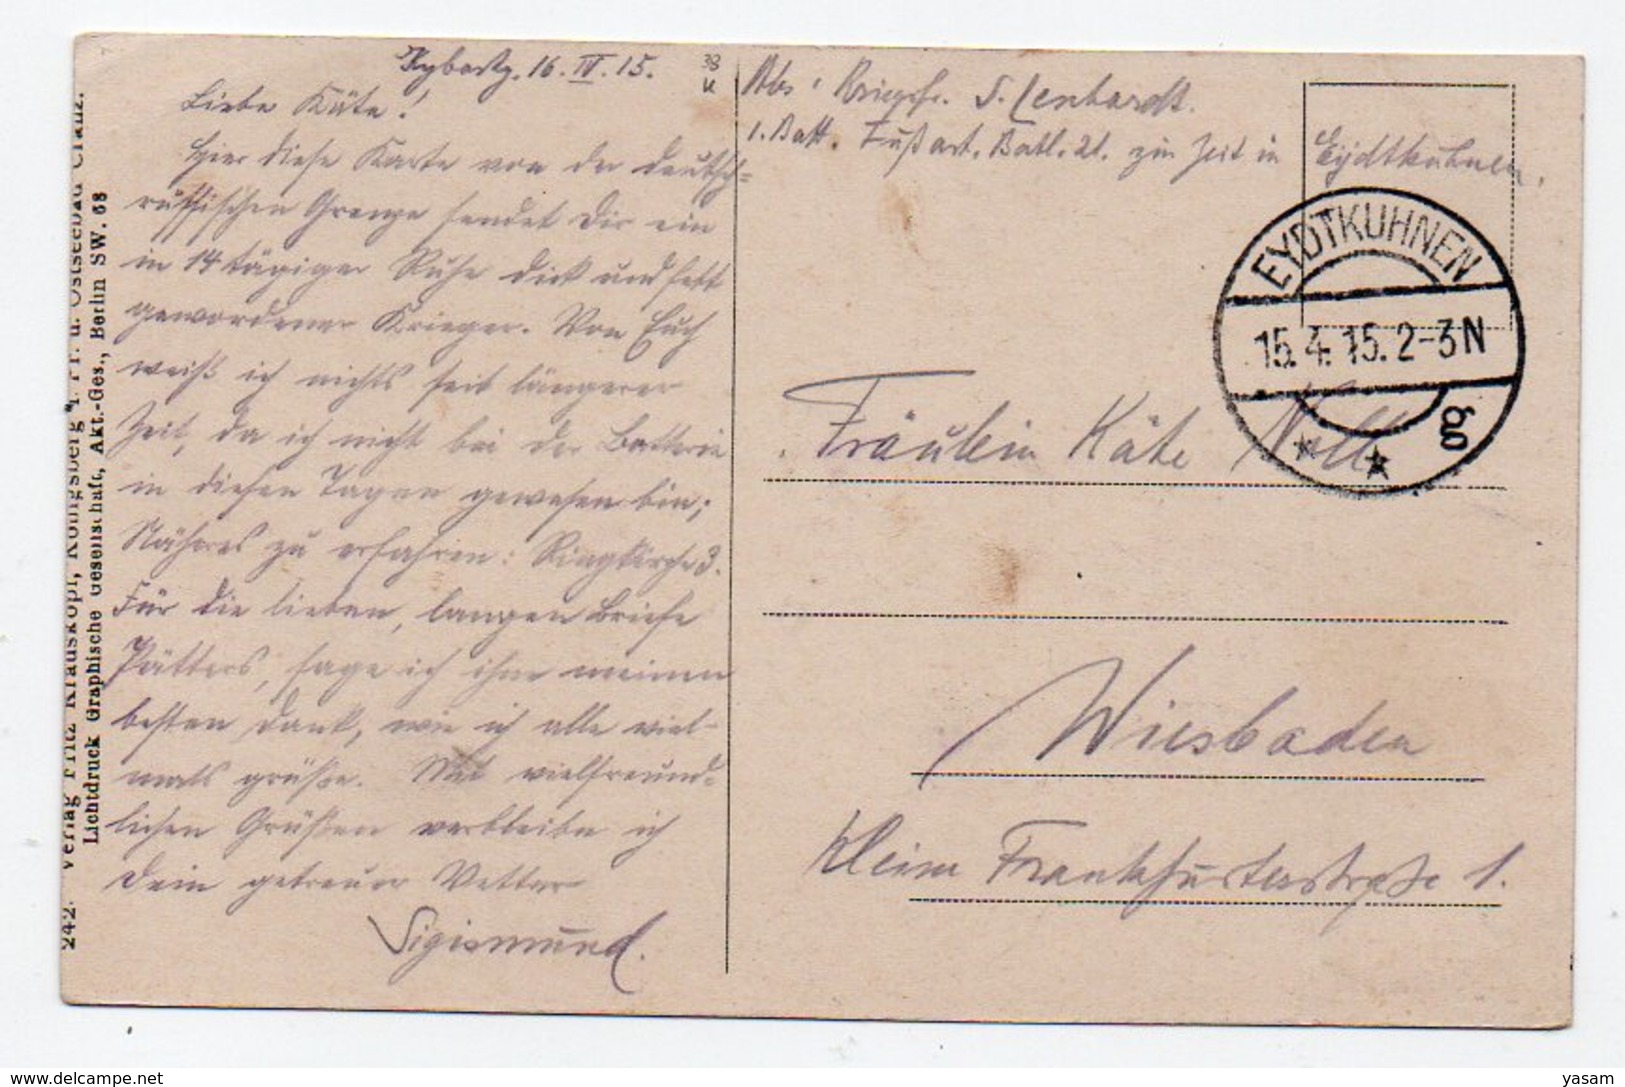 Kybartz, 16. IV. 15.
Liebe Käte!
Hier diese Karte von der deutsch=
russischen Grenze sendet Dir ein
in 14 tägiger Ruhe dick und fett
gewordener Krieger. Von Euch
weiß ich nichts seit längerer
Zeit, da ich nicht bei der Batterie
in diesen Tagen gewesen bin;
Näheres zu erfahren: Ringkirche 3.
Für die lieben, langen Briefe
Vätters, sage ich ihm meinen
besten Dank, wie ich alle viel-
mals grüße. Mit vielfreund-
lichen Grüßen verbleibe ich
Dein getreuer Vetter
Sigismund.
38
K
Abs: Kriegsfr. S. Lenhardt.
1. Batt. Fußart. Batl. 21. zur Zeit in Eydtkuhnen.
EYDTKUHNEN
15.4.15.2-3N
* * g
Fräulein Käte Noll
Wiesbaden
Kleine Frankfurterstraße 1.
242. Verlag Fritz Krauskopf, Königsberg i. Pr. u. Ostseebad Cranz.
Lichtdruck Graphische Gesellschaft, Akt.-Ges., Berlin SW. 68
yasam
www.delcampe.net